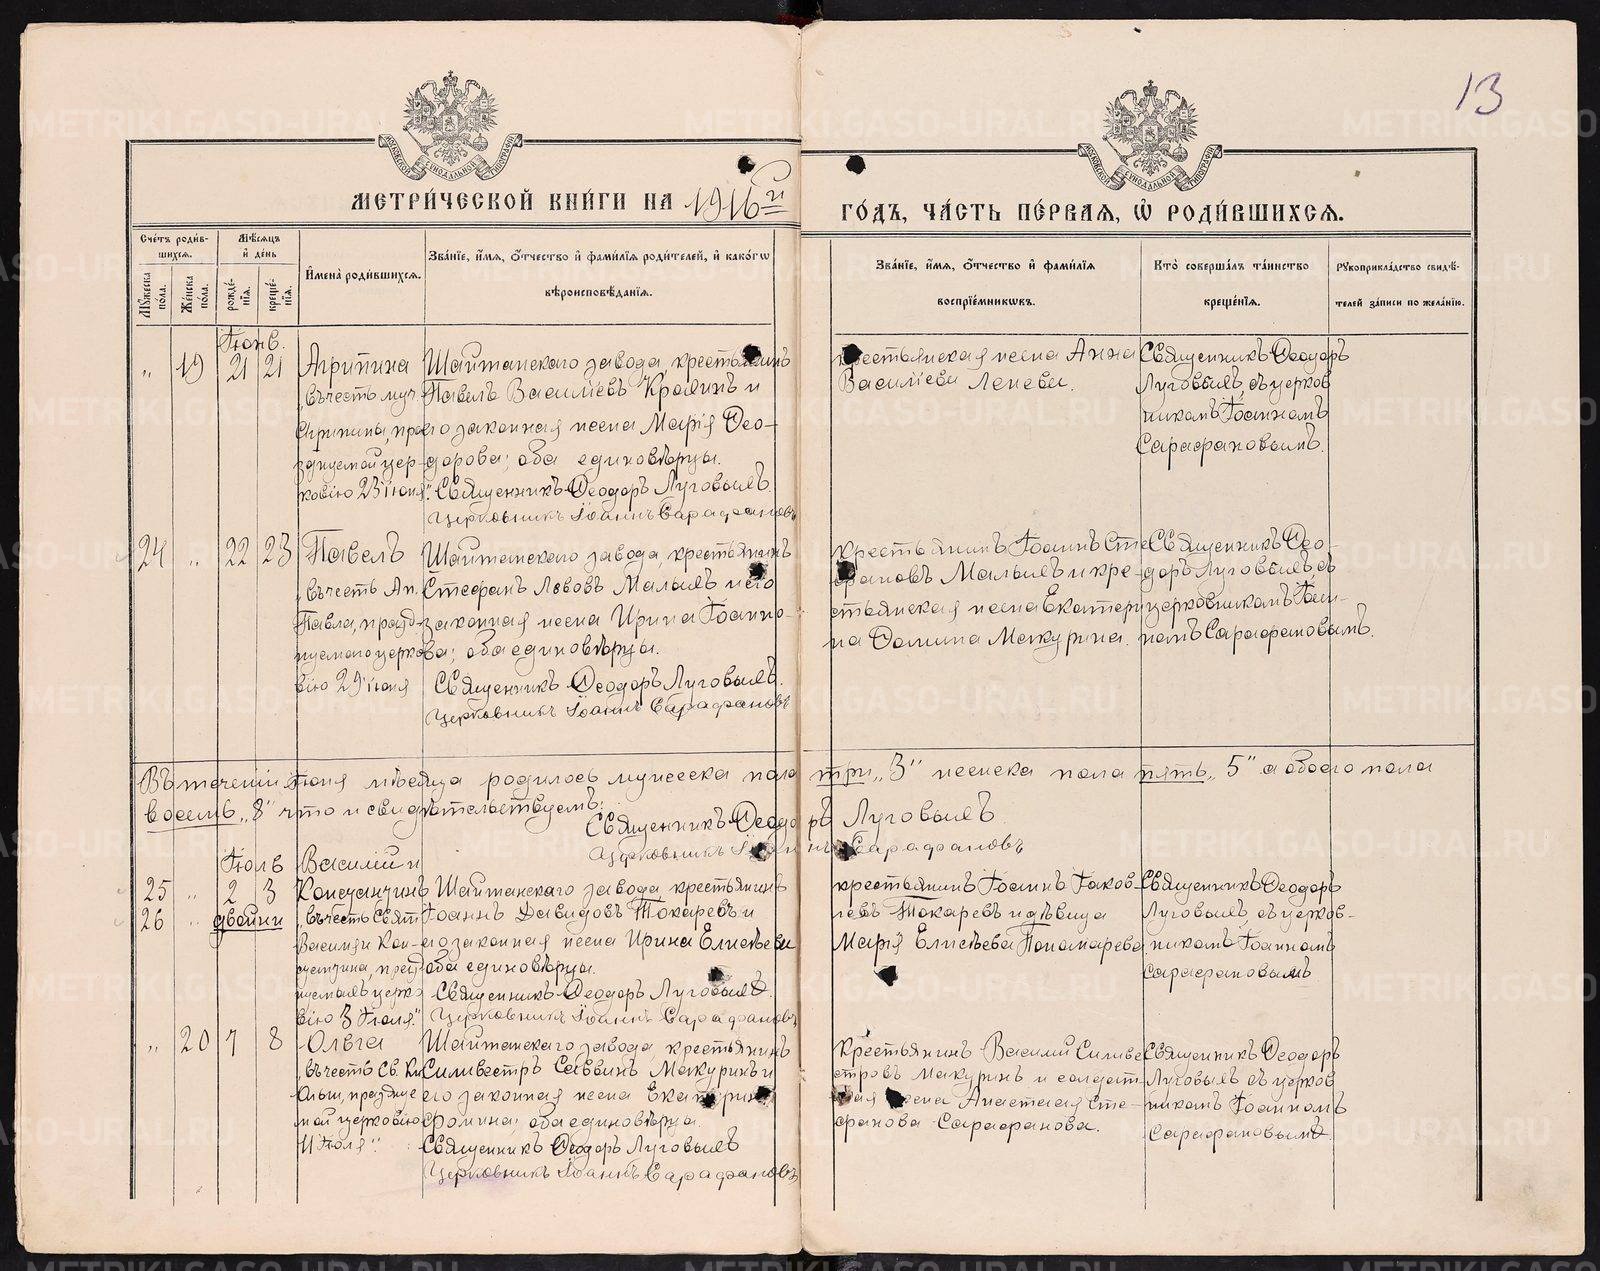 13
МЕТРИ́ЧЕСКОЙ КНИ́ГИ НА 1916й
ГО́ДЪ, ЧА́СТЬ ПЕ́РВАЯ, Ѡ РОДИ́ВШИХСЯ.
Сче́тъ роди́в-
шихся.
Мꙋ́жеска по́ла.
Же́нска по́ла.
Мѣ́сяцъ и де́нь
рожде́-нїя.
креще́-нїя.
Имена̀ роди́вшихся.
Зва́нїе, и́мя, о́тчество и фами́лїя роди́телей, и како́гѡ
вѣроисповѣ́данїя.
Зва́нїе, и́мя, о́тчество и фами́лїя
воспрїе́мникѡвъ.
Кто̀ соверша́лъ та́инство
креще́нїя.
Рꙋкоприкла́дство свидѣ́-
телей за́писи по жела́нїю.
Іюнь.
„ 19 21 21
Агрипина
„въ честь муч.
Агрипины, пра-
зднуемой цер-
ковію 23 іюня".
Шайтанскаго завода, крестьянинъ
Павелъ Василіевъ Кралинъ и
его законная жена Марія Ѳео-
дорова; оба единовѣрцы.
Священникъ Ѳеодоръ Луговыхъ.
Церковникъ Іоаннъ Сарафановъ
крестьянская жена Анна
Василіева Ленева.
Священникъ Ѳеодоръ
Луговыхъ, съ церков
никомъ Іоанномъ
Сарафановымъ.
24 „ 22 23
Павелъ
„въ честь Ап.
Павла, празд-
нуемаго церко-
вію 29 іюня
Шайтанскаго завода, крестьянинъ
Стефанъ Львовъ Малыхъ и его
законная жена Ирина Іоанно-
ва; оба единовѣрцы.
Священникъ Ѳеодоръ Луговыхъ.
Церковникъ Іоаннъ Сарафановъ
крестьянинъ Іоаннъ Сте-
фановъ Малыхъ и кре-
стьянская жена Екатери-
на Домина Мокурина.
Священникъ Ѳео-
доръ Луговыхъ, съ
церковникомъ Іоан-
номъ Сарафановымъ.
Въ теченіи Іюня мѣсяца родилось мужеска пола три „3" женска пола пять „5" а обоего пола
восемь „8" что и свидѣтельствуемъ:
Священникъ Ѳеодоръ Луговыхъ
Церковникъ Іоаннъ Сарафановъ
Іюль
25 „ 2 3
26 „ двойни
Василій и
Констанцинъ
„въ честь Свят
Василія и Кон-
стантина, празд
нуемыхъ церко
вію 3 Іюля."
Шайтанскаго завода, крестьянинъ
Іоаннъ Давидовъ Токаревъ и
его законная жена Ирина Елисѣева
оба единовѣрцы.
Священникъ Ѳеодоръ Луговыхъ.
Церковникъ Іоаннъ Сарафановъ
крестьянинъ Іоаннъ Іаков-
левъ Токаревъ и дѣвица
Марія Елисѣева Пономарева
Священникъ Ѳеодоръ
Луговыхъ, съ церков-
никомъ Іоанномъ
Сарафановымъ
„ 20 7 8
Ольга
„въ честь Св. Кн
Ольги, праздуе
мой церковію
11 Іюля".
Шайтанскаго завода, крестьянинъ
Силивестръ Саввинъ Мокуринъ и
его законная жена Екатерина
Фомина; оба единовѣрцы.
Священникъ Ѳеодоръ Луговыхъ
Церковникъ Іоаннъ Сарафановъ
Крестьянинъ Василій Силиве
стровъ Мокуринъ и солдат-
ская жена Анастасія Сте-
фанова Сарафанова.
Священникъ Ѳеодоръ
Луговыхъ, съ церков
никомъ Іоанномъ
Сарафановымъ.